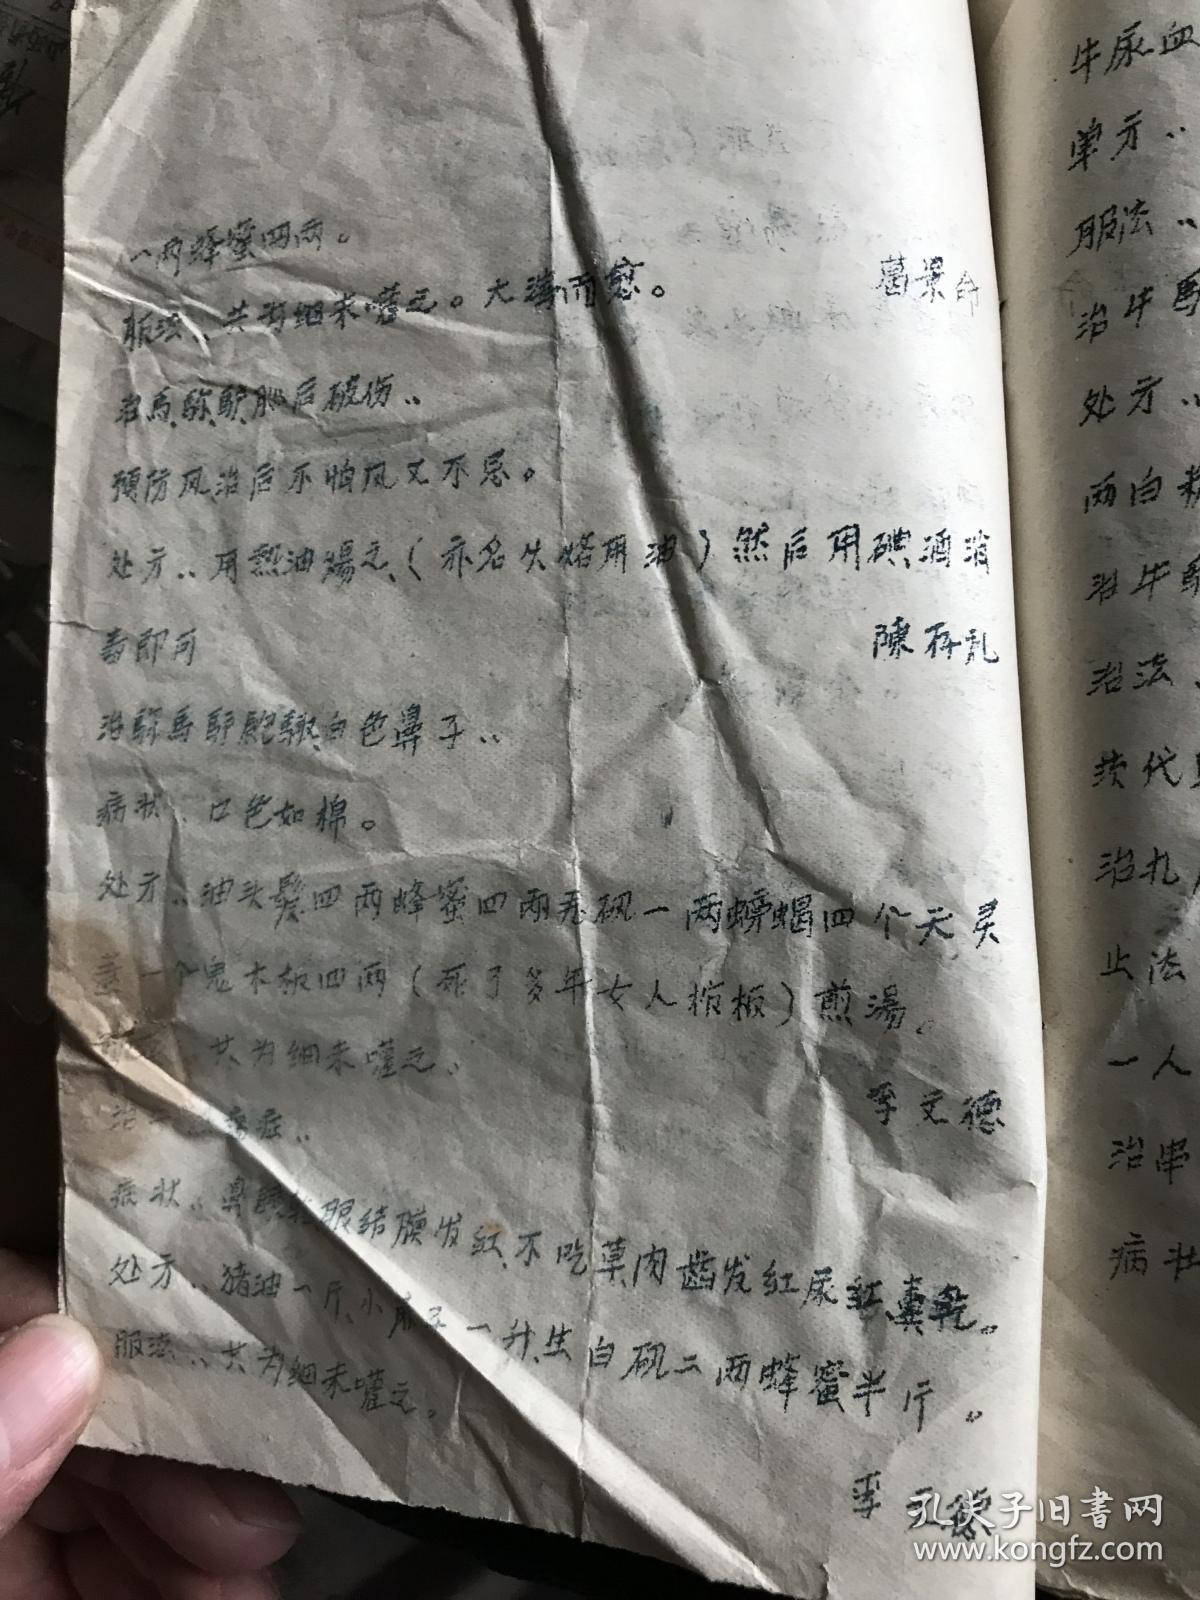 一两蜂蜜四两。
服法、共为细末嚾之。大汗而愈。 葛景合
治马骡驴肚后破伤..
预防风治后不怕风又不忌。
处方..用热油烫之、(亦名失烙用油)然后用碘酒消
毒即可 陳存礼
治骡马驴 白色鼻子..
病状、口色如棉。
处方..油头髮四两蜂蜜四两 矾一两螃蝎四个天灵
盖一个鬼木板四两(死了多年女人棺板)煎湯。
共为细末嚾之。
李文德
治 症..
病状..鼻 眼结膜发红、不吃草、肉齿发红尿红、粪乾。
处方..猪油一斤、小麻子一升、生白矾二两蜂蜜半斤。
服法..共为细末嚾之。
李文德
牛尿血
单方..
服法..
治牛
处方..
两白
治牛
治法、
扶代
治扎
止法
一人
治串
病状
孔夫子旧书网
www.kongfz.com